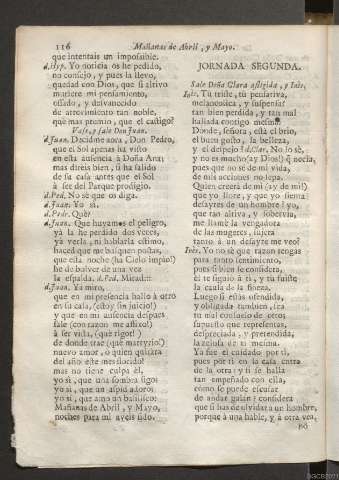 116 Mañanas de Abril, y Mayo.
que intentais un imposible.
d.Hyp. Yo noticia os he pedido,
no consejo, y pues la llevo,
quedad con Dios, que si altivo
muriere mi pensamiento,
ossado, y desvanecido
de atrevimiento tan noble,
què mas premio, que el castigo?
Vase, y sale Don Juan.
d.Juan. Decidme aora, Don Pedro,
que el Sol apenas ha visto
en esta ausencia à Doña Ana;
mas direis bien, si ha salido
de su casa antes que el Sol
à ser del Parque prodigio.
d.Ped. No sè que os diga.
d.Juan. Yo sì.
d.Pedr. Què?
d.Juan. Que huyamos el peligro,
yà la he perdido dos veces,
yà verla, ni hablarla estimo,
haced que me busquen postas,
que esta noche (ha Cielo impio!)
he de bolver de una vez
la espalda. d.Ped. Mirad::
d.Juan. Yà miro,
que en mi presencia hallo à otro
en su casa, (estoy sin juicio!)
y que en mi ausencia despues
sale (con razon me aflixo!)
à ser vista, (què rigor!)
de donde trae (què martyrio!)
nuevo amor, ò quien quitàra
del año este mes florido!
mas no tiene culpa èl,
yo sì, que una sombra sigo,
yo sì, que un aspid adoro,
yo sì, que amo un basilisco:
Mañanas de Abril, y Mayo,
noches para mi aveis sido.
JORNADA SEGUNDA.
Sale Doña Clara afligida, y Inès.
Inès. Tù triste, tù pensativa,
melancolica, y suspensa?
tan bien perdida, y tan mal
hallada contigo mesma?
Donde, señora, està el brio,
el buen gusto, la belleza,
y el despejo? d.Clar. No lo sè,
y no es mucho (ay Dios!) q̃ no sepa,
pues que no sè de mi vida,
de mis acciones no sepa.
Quien creerà de mi (ay de mi!)
que yo llore, y que yo sienta
desayres de un hombre? yo,
que tan altiva, y sobervia,
me llamè la vengadora
de las mugeres, sujeta
tanto à un desayre me veo?
Inès. Yo no sè que razon tengas
para tanto sentimiento,
pues si bien se considera,
èl te siguiò à ti, y tu fuiste
la causa de la fineza.
Luego si estàs ofendida,
y obligada tambien, sea
tu mal consuelo de otros,
supuesto que representas,
despreciada, y pretendida,
la zelosa de ti mesma.
Yà fue el cuidado por ti,
pues por ti en la casa entra
de la otra; y si se halla
tan empeñado con ella,
còmo se puede escusar
de andar galàn? considera
que si has de olvidar à un hombre,
porque à una hable, y à otra vea,
no